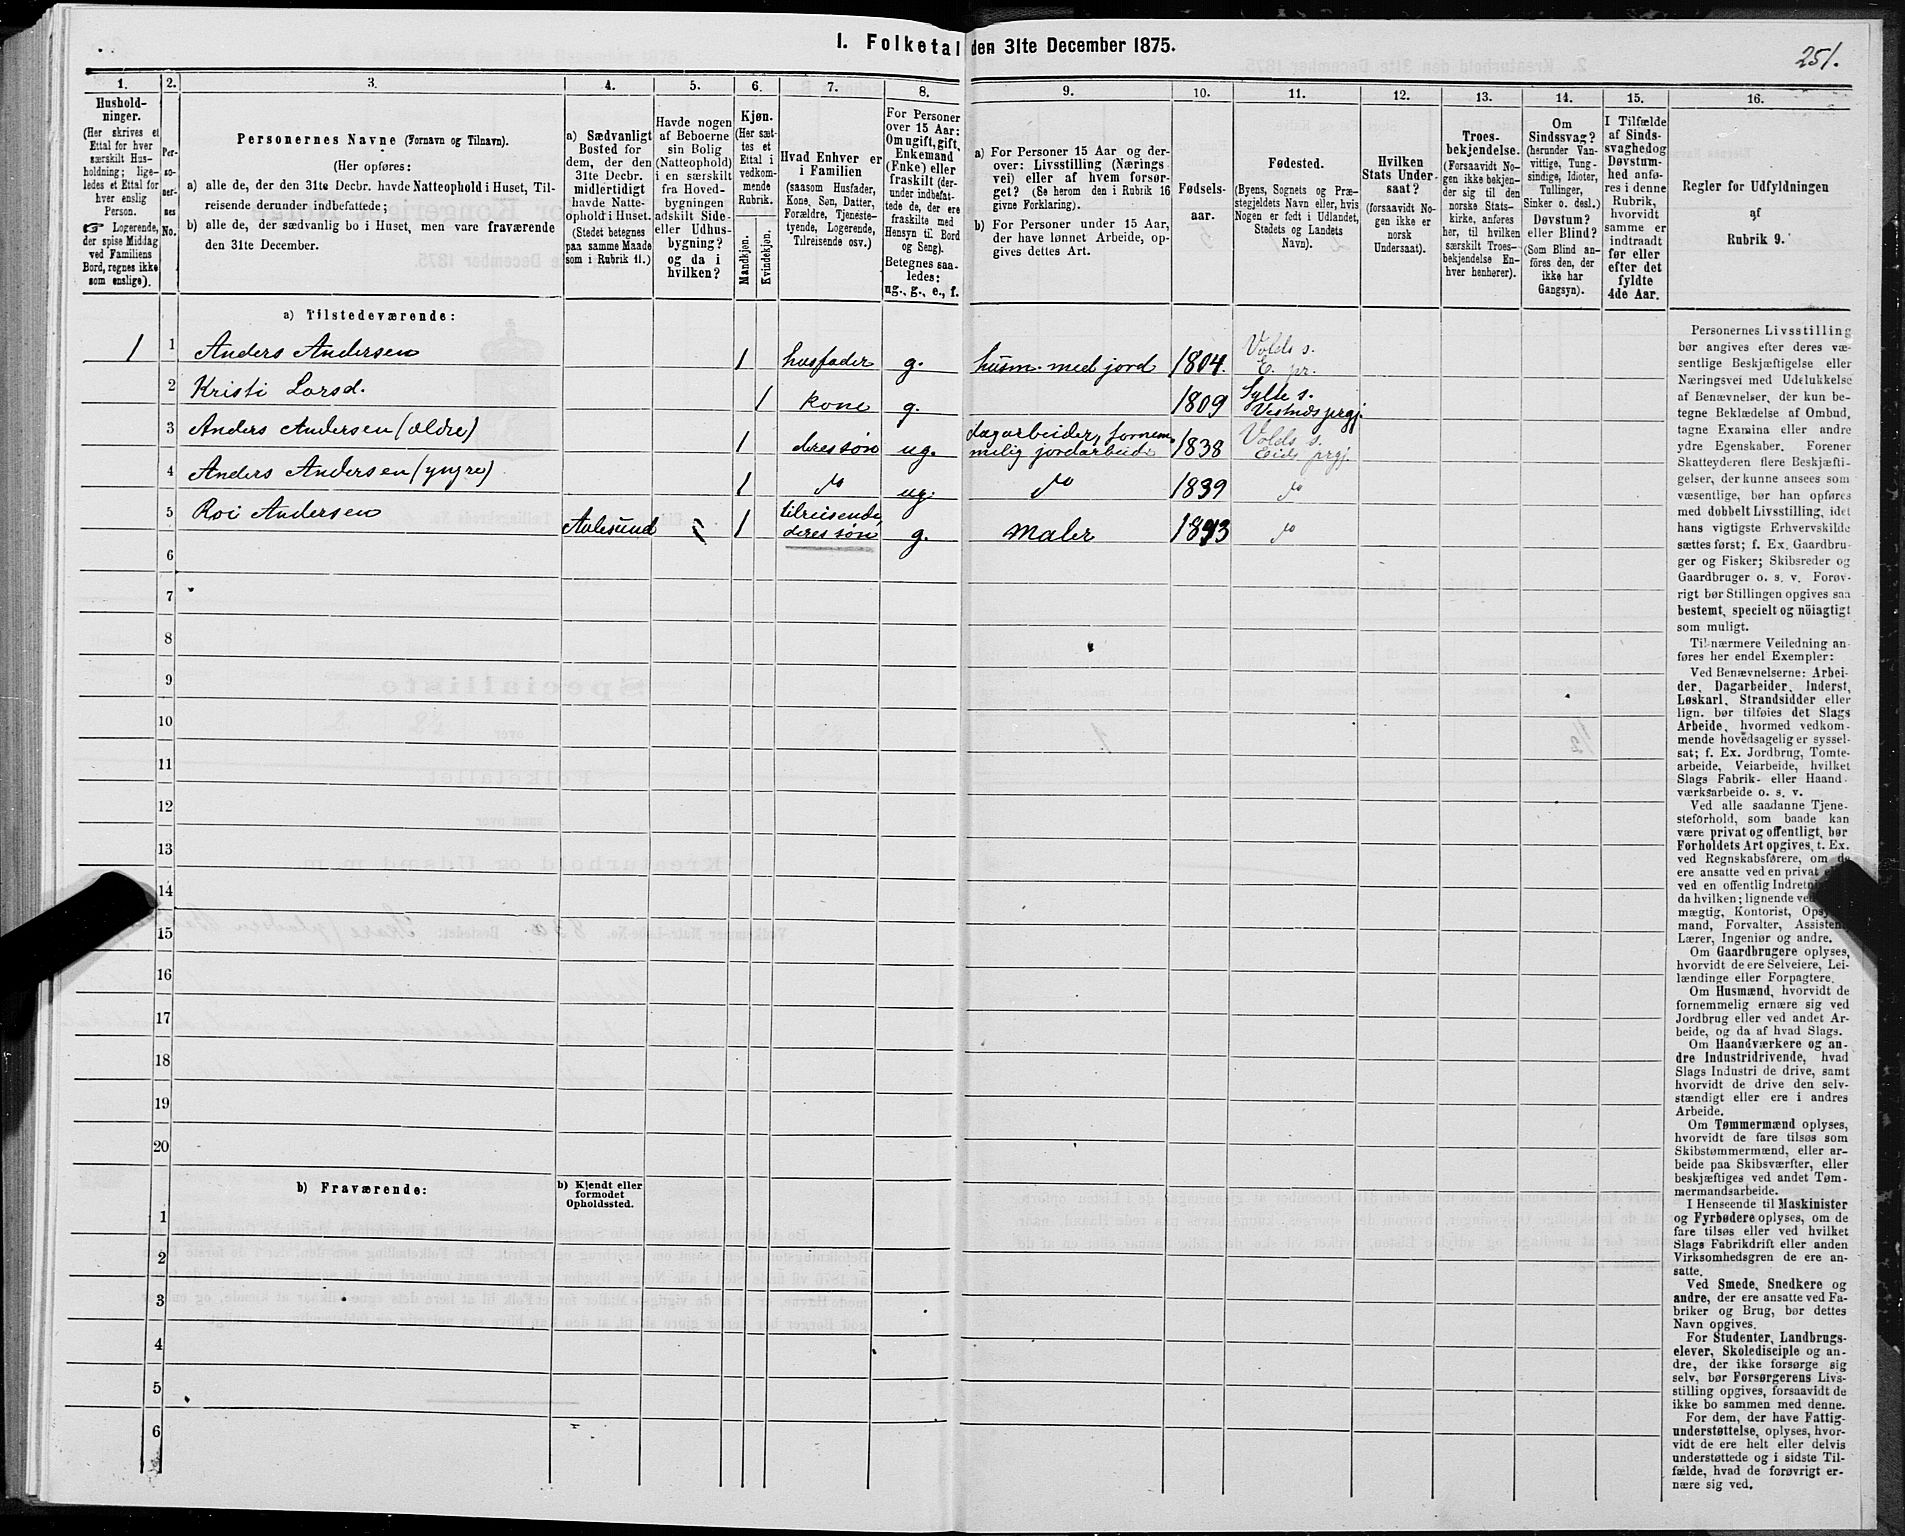 I. Folketal den 31te December 1875.
251.
1.
2.
3.
4.
5.
6.
7.
8.
9.
10.
11.
12.
13.
14.
15.
16.
Hushold-
ninger.
(Her skrives et
Ettal for hver
særskilt Hus-
holdning; lige-
ledes et Ettal for
hver enslig
Person.
☞ Logerende,
der spise Middag
ved Familiens
Bord, regnes ikke
som enslige).
Per-
so-
ner-
nes
No.
Personernes Navne (Fornavn og Tilnavn).
(Her opføres:
a) alle de, der den 31te Decbr. havde Natteophold i Huset, Til-
reisende derunder indbefattede;
b) alle de, der sædvanlig bo i Huset, men vare fraværende
den 31te December.
a) Sædvanligt
Bosted for
dem, der den
31te Decbr.
midlertidigt
havde Natte-
ophold i Huset.
(Stedet betegnes
paa samme Maade
som i Rubrik 11.)
Havde nogen
af Beboerne
sin Bolig
(Natteophold)
i en særskilt
fra Hoved-
bygningen
adskilt Side-
eller Udhus-
bygning?
og da i
hvilken?
Kjøn.
(Her sæt-
tes et
Ettal i
vedkom-
mende
Rubrik.
Mandkjøn.
Kvindekjøn.
Hvad Enhver er
i Familien
(saasom Husfader,
Kone, Søn, Datter,
Forældre, Tjeneste-
tyende, Logerende,
Tilreisende osv.)
For Personer
over 15 Aar:
Om ugift, gift,
Enkemand
(Enke) eller
fraskilt (der-
under indbefat-
tede de, der ere
fraskilte med
Hensyn til Bord
og Seng).
Betegnes saa-
ledes:
ug., g., e., f.
a) For Personer 15 Aar og der-
over: Livsstilling (Nærings-
vei) eller af hvem forsør-
get? (Se herom den i Rubrik 16
givne Forklaring).
b) For Personer under 15 Aar,
der have lønnet Arbeide, op-
gives dettes Art.
Fødsels-
aar.
Fødested.
(Byens, Sognets og Præ-
stegjeldets Navn eller, hvis
Nogen er født i Udlandet,
Stedets og Landets
Navn).
Hvilken
Stats Under-
saat?
(forsaavidt No-
gen ikke er
norsk
Undersaat).
Troes-
bekjendelse.
(Forsaavidt No-
gen ikke bekjen-
der sig til den
norske Stats-
kirke, anføres
her, til hvilken
særskilt Troes-
bekjendelse En-
hver henhører).
Om
Sindssvag?
(herunder Van-
vittige, Tung-
sindige, Idioter,
Tullinger,
Sinker o. desl.)
Døvstum?
eller Blind?
(Som Blind an-
føres den, der
ikke har
Gangsyn).
I Tilfælde
af Sinds-
svaghed og
Døvstum-
hed anfø-
res i denne
Rubrik,
hvorvidt
samme er
indtraadt
før eller
efter det
fyldte
4de Aar.
Regler for Udfyldningen
af
Rubrik 9.
a) Tilstedeværende:
1 1 Anders Andersen 1 husfader g. husm. med jord 1804. Volds s.
E. pr.
2 Kristi Larsd. 1 kone g. 1809 Sylte s.
Vestnds prgj.
3 Anders Andersen (ældre) 1 deres søn ug. dagarbeider, fornem-
melig jordarbeide 1838 Volds s.
Eids prgj.
4 Anders Andersen (yngre) 1 do ug. do 1839 do
5 Roi Andersen Aalesund 1 tilreisende,
deres søn g. Maler 1843 do
6
7
8
9
10
11
12
13
14
15
16
17
18
19
20
b) Fraværende:
b) Kjendt eller
formodet
Opholdssted.
1
2
3
4
5
6
Personernes Livsstilling
bør angives efter deres væ-
sentlige Beskjæftigelse eller
Næringsvei med Udelukkelse
af Benævnelser, der kun be-
tegne Beklædelse af Ombud,
tagne Examina eller andre
ydre Egenskaber. Forener
Skatteyderen flere Beskjæfti-
gelser, der kunne ansees som
væsentlige, bør han opføres
med dobbelt Livsstilling, idet
hans vigtigste Erhvervskilde
sættes først; f. Ex. Gaardbru-
ger og Fisker; Skibsreder og
Gaardbruger o. s. v. Forøv-
rigt bør Stillingen opgives saa
bestemt, specielt og nöiagtigt
som muligt.
Til nærmere Veiledning an-
føres her endel Exempler:
Ved Benævnelserne: Arbei-
der, Dagarbeider, Inderst,
Løskarl, Strandsidder eller
lign. bør tilføies det Slags
Arbeide, hvormed vedkom-
mende hovedsagelig er syssel-
sat; f. Ex. Jordbrug, Tomte-
arbeide, Veiarbeide, hvilket
Slags Fabrik- eller Haand-
værksarbeide o. s. v.
Ved alle saadanne Tjene-
steforhold, som baade kan
være privat og offentligt, bør
Forholdets Art opgives, t. Ex.
ved Regnskabsførere, om de
ere ansatte ved en privat
ved en offentlig
da hvilken; lignende
mægtig, Kontorist,
mand, Forvalter,
Lærer, Ingeniør og andre.
Om Gaardbrugere oplyses,
hvorvidt de ere Selveiere, Lei-
lændinge eller Forpagtere.
Om Husmænd, hvorvidt de
fornemmelig ernære sig ved
Jordbrug eller ved andet Ar-
beide, og da af hvad Slags.
Om Haandværkere og an-
dre Industridrivende, hvad
Slags Industri de drive, samt
hvorvidt de drive den selv-
stændigt eller ere i andres
Arbeide.
Om Tømmermænd oplyses,
hvorvidt de fare tilsøs som
Skibstømmermænd, eller ar-
beide paa Skibsværfter, eller
beskjæftiges ved andet Tøm-
mermandsarbeide.
I Henseende til Maskinister
og Fyrbødere oplyses, om de
fare tilsøs eller ved hvilket
Slags Fabrikdrift eller anden
Virksomhedsgren de ere an-
satte.
Ved Smede, Snedkere og
andre, der ere ansatte ved Fa-
briker og Brug, bør dettes
Navn opgives.
For Studenter, Landbrugs-
elever, Skoledisciple og an-
dre, der ikke forsørge sig
selv, bør Forsørgerens Livs-
stilling opgives, forsaavidt de
ikke bo sammen med denne.
For dem, der have Fattig-
understøttelse, oplyses, hvor-
vidt de ere helt eller delvis
understøttede og i sidste Til-
fælde, hvad de forøvrigt er-
nære sig ved.